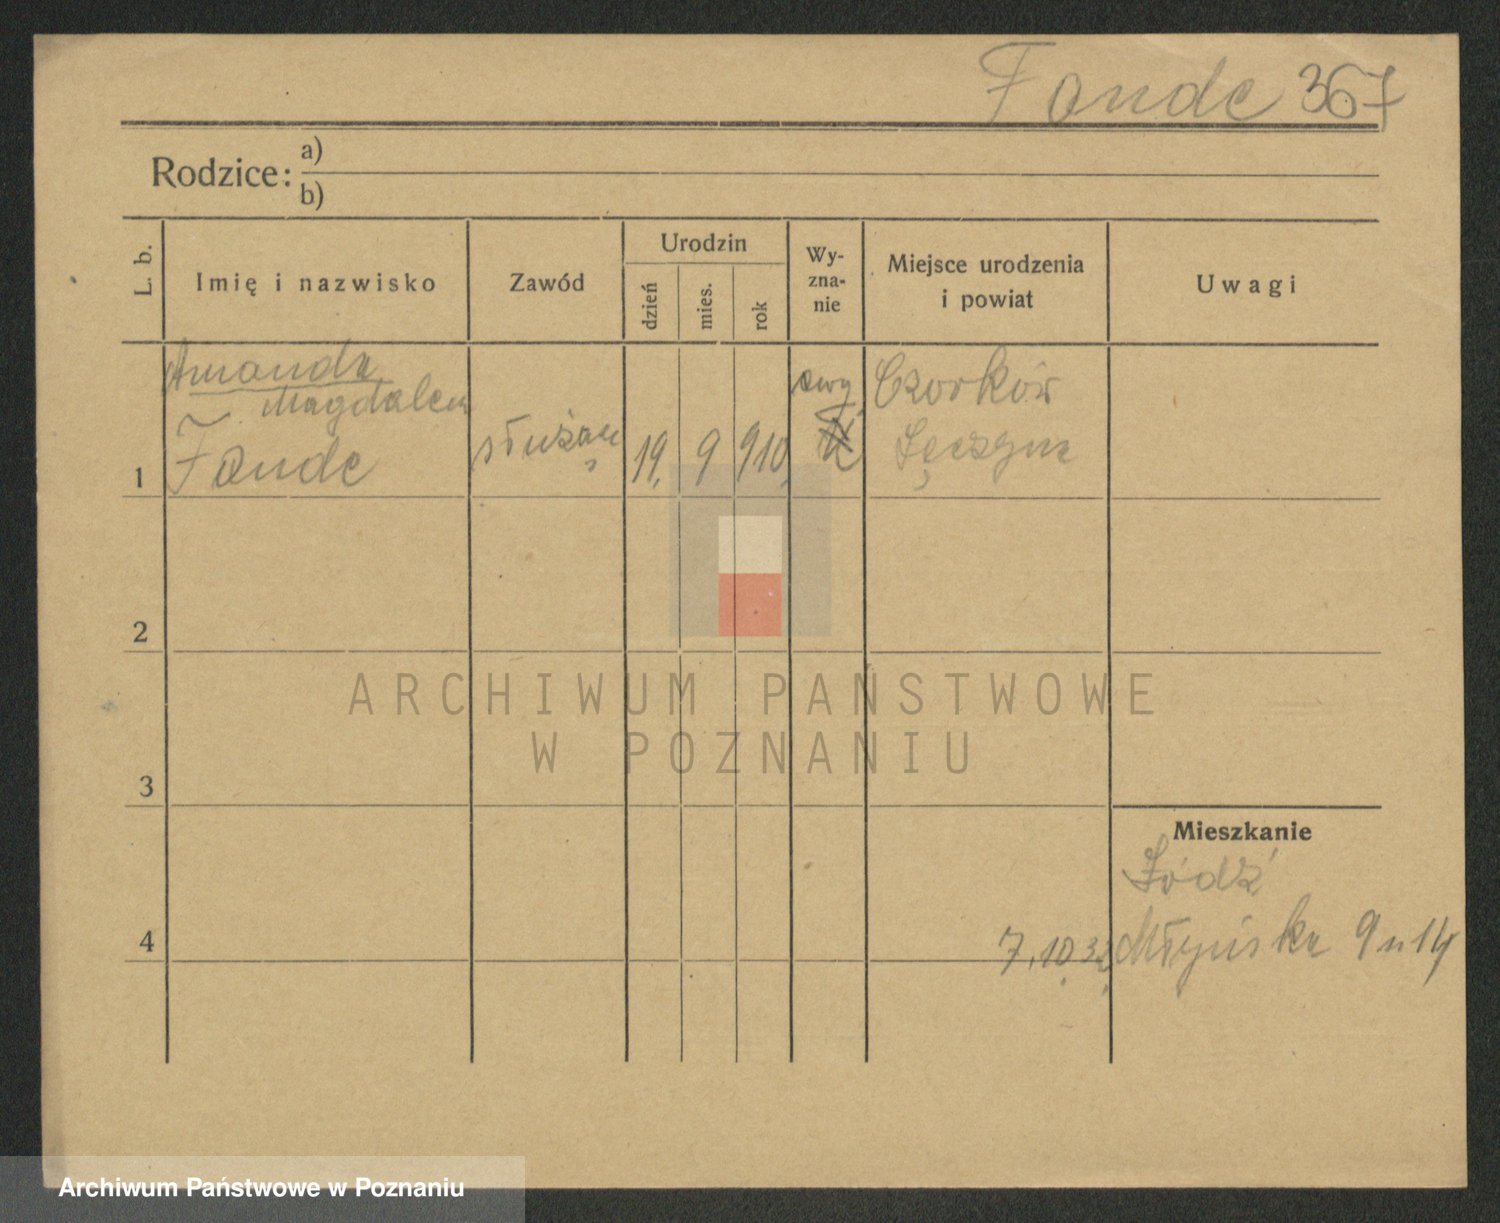 Fande 367
Rodzice:
a)
b)
L. b.
Imię i nazwisko
Zawód
Urodzin
dzień
mies.
rok
Wy-
zna-
nie
Miejsce urodzenia
i powiat
Uwagi
1
Amanda
Magdalena
Fande
służąca
19.
9
910.
ewg
Czorków
Łęczyca
2
3
Mieszkanie
Łódź
4
7.10.32.
Młyńska 9 n 14
ARCHIWUM PAŃSTWOWE
W POZNANIU
Archiwum Państwowe w Poznaniu